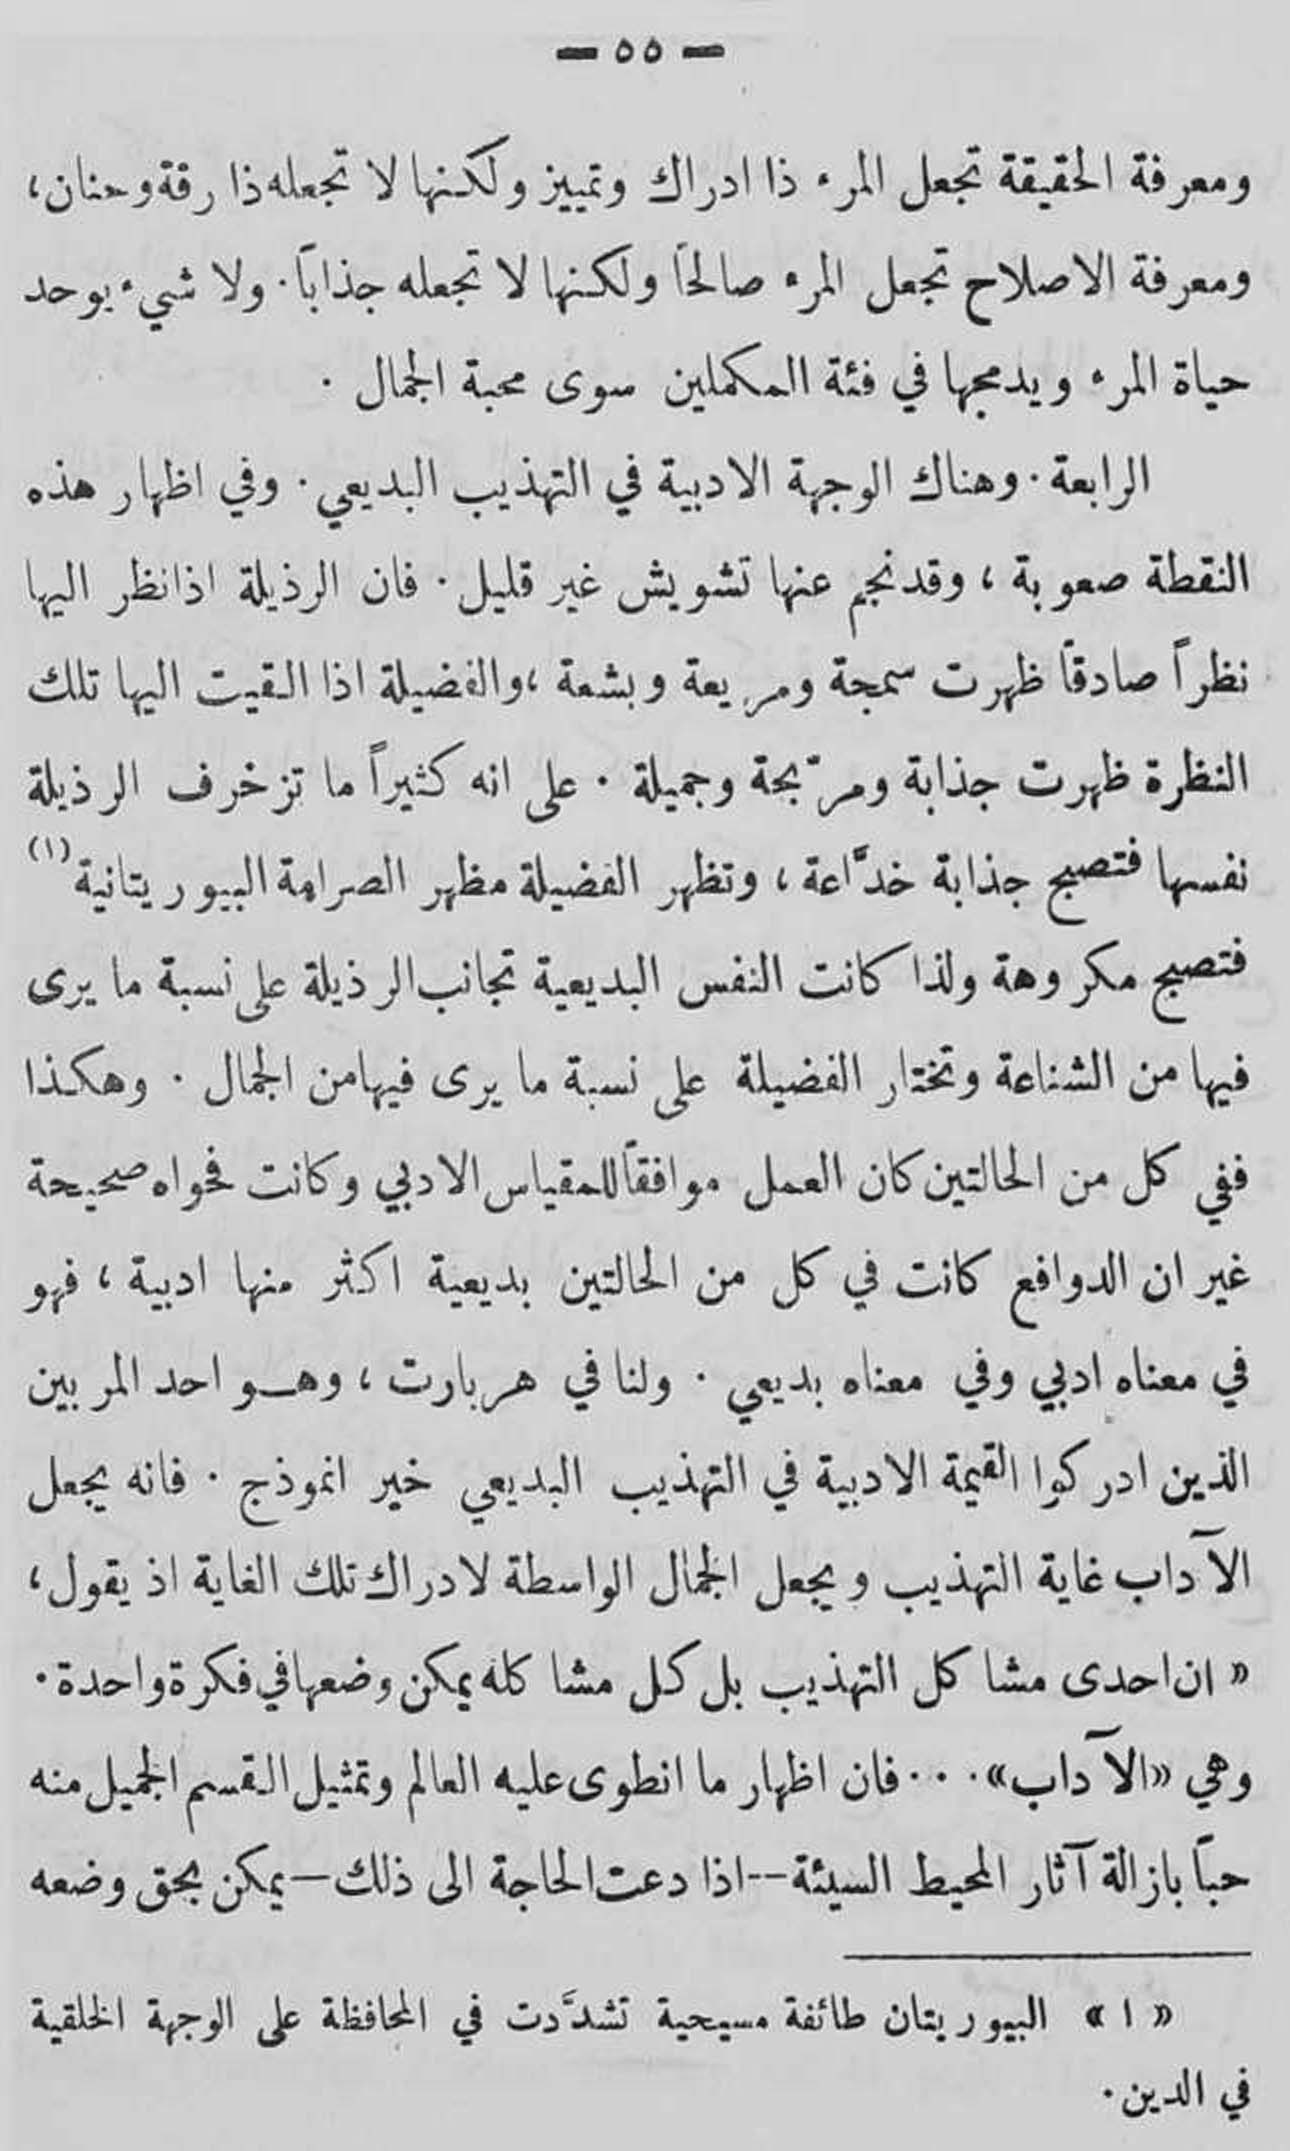 — ٥٥ —
ومعرفة الحقيقة تجعل المرء ذا ادراك وتمييز ولكنها لا تجعله ذا رقة وحنان،
ومعرفة الاصلاح تجعل المرء صالحاً ولكنها لا تجعله جذاباً. ولا شيء يوحد
حياة المرء ويدمجها في فئة المكملين سوى محبة الجمال .
الرابعة . وهناك الوجهة الادبية في التهذيب البديعي . وفي اظهار هذه
النقطة صعوبة ، وقد نجم عنها تشويش غير قليل . فان الرذيلة اذا نظر اليها
نظراً صادقاً ظهرت سمجة ومريعة وبشعة ، والفضيلة اذا القيت اليها تلك
النظرة ظهرت جذابة ومرّبحة وجميلة . على انه كثيراً ما تزخرف الرذيلة
نفسها فتصبح جذابة خدَّاعة ، وتظهر الفضيلة مظهر الصرامة البيوريتانية (١)
فتصبح مكروهة ولذا كانت النفس البديعية تجانب الرذيلة على نسبة ما يرى
فيها من الشناعة وتختار الفضيلة على نسبة ما يرى فيها من الجمال . وهكذا
ففي كل من الحالتين كان العمل موافقاً للمقياس الادبي وكانت فحواه صحيحة
غير ان الدوافع كانت في كل من الحالتين بديعية اكثر منها ادبية ، فهو
في معناه ادبي وفي معناه بديعي . ولنا في هربارت ، وهو احد المربين
الذين ادركوا القيمة الادبية في التهذيب البديعي خير انموذج . فانه يجعل
الآداب غاية التهذيب ويجعل الجمال الواسطة لادراك تلك الغاية اذ يقول ،
« ان احدى مشاكل التهذيب بل كل مشاكله يمكن وضعها في فكرة واحدة .
وهي «الآداب» . . . فان اظهار ما انطوى عليه العالم وتمثيل القسم الجميل منه
حباً بازالة آثار المحيط السيئة -- اذا دعت الحاجة الى ذلك — يمكن بحق وضعه
« ١ » البيوريتان طائفة مسيحية تشدَّدت في المحافظة على الوجهة الخلقية
في الدين .